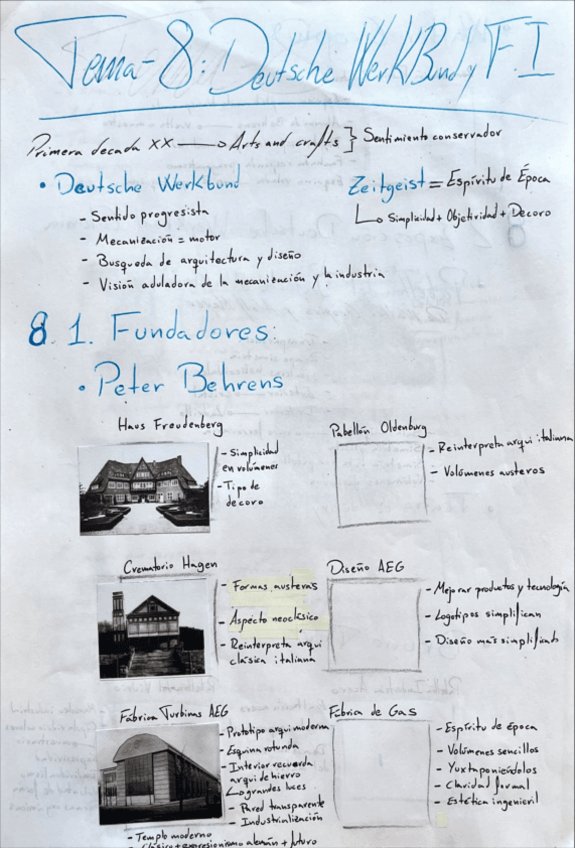 Tema-8: Deutsche WerkBund y F.I
Primera decada XX → Arts and crafts } Sentimiento conservador
• Deutsche Werkbund
- Sentido progresista
- Mecanización = motor
- Busqueda de arquitectura y diseño
- Visión aduladora de la mecanización y la industria
Zeitgeist = Espíritu de Época
↳ Simplicidad + Objetividad + Decoro
8.1. Fundadores:
• Peter Behrens
Haus Freudenberg
- Simplicidad
en volúmenes
- Tipo de
decoro
Pabellón Oldenburg
- Reinterpreta arqui italiana
- Volúmenes austeros
Crematorio Hagen
- Formas austeras
- Aspecto neoclásico
- Reinterpreta arqui
clásica italiana
Diseño AEG
- Mejorar productos y tecnología
- Logotipos simplifican
- Diseño más simplificado
Fábrica Turbinas AEG
- Prototipo arqui moderna
- Esquina rotunda
- Interior recuerda
arqui de hierro
↳ grandes luces
- Pared transparente
- Industrialización
- Templo moderno
- Clásico + expresionismo alemán + futuro
Fabrica de Gas
- Espíritu de época
- Volúmenes sencillos
- Yuxtaponiéndolos
- Claridad formal
- Estética ingenieril